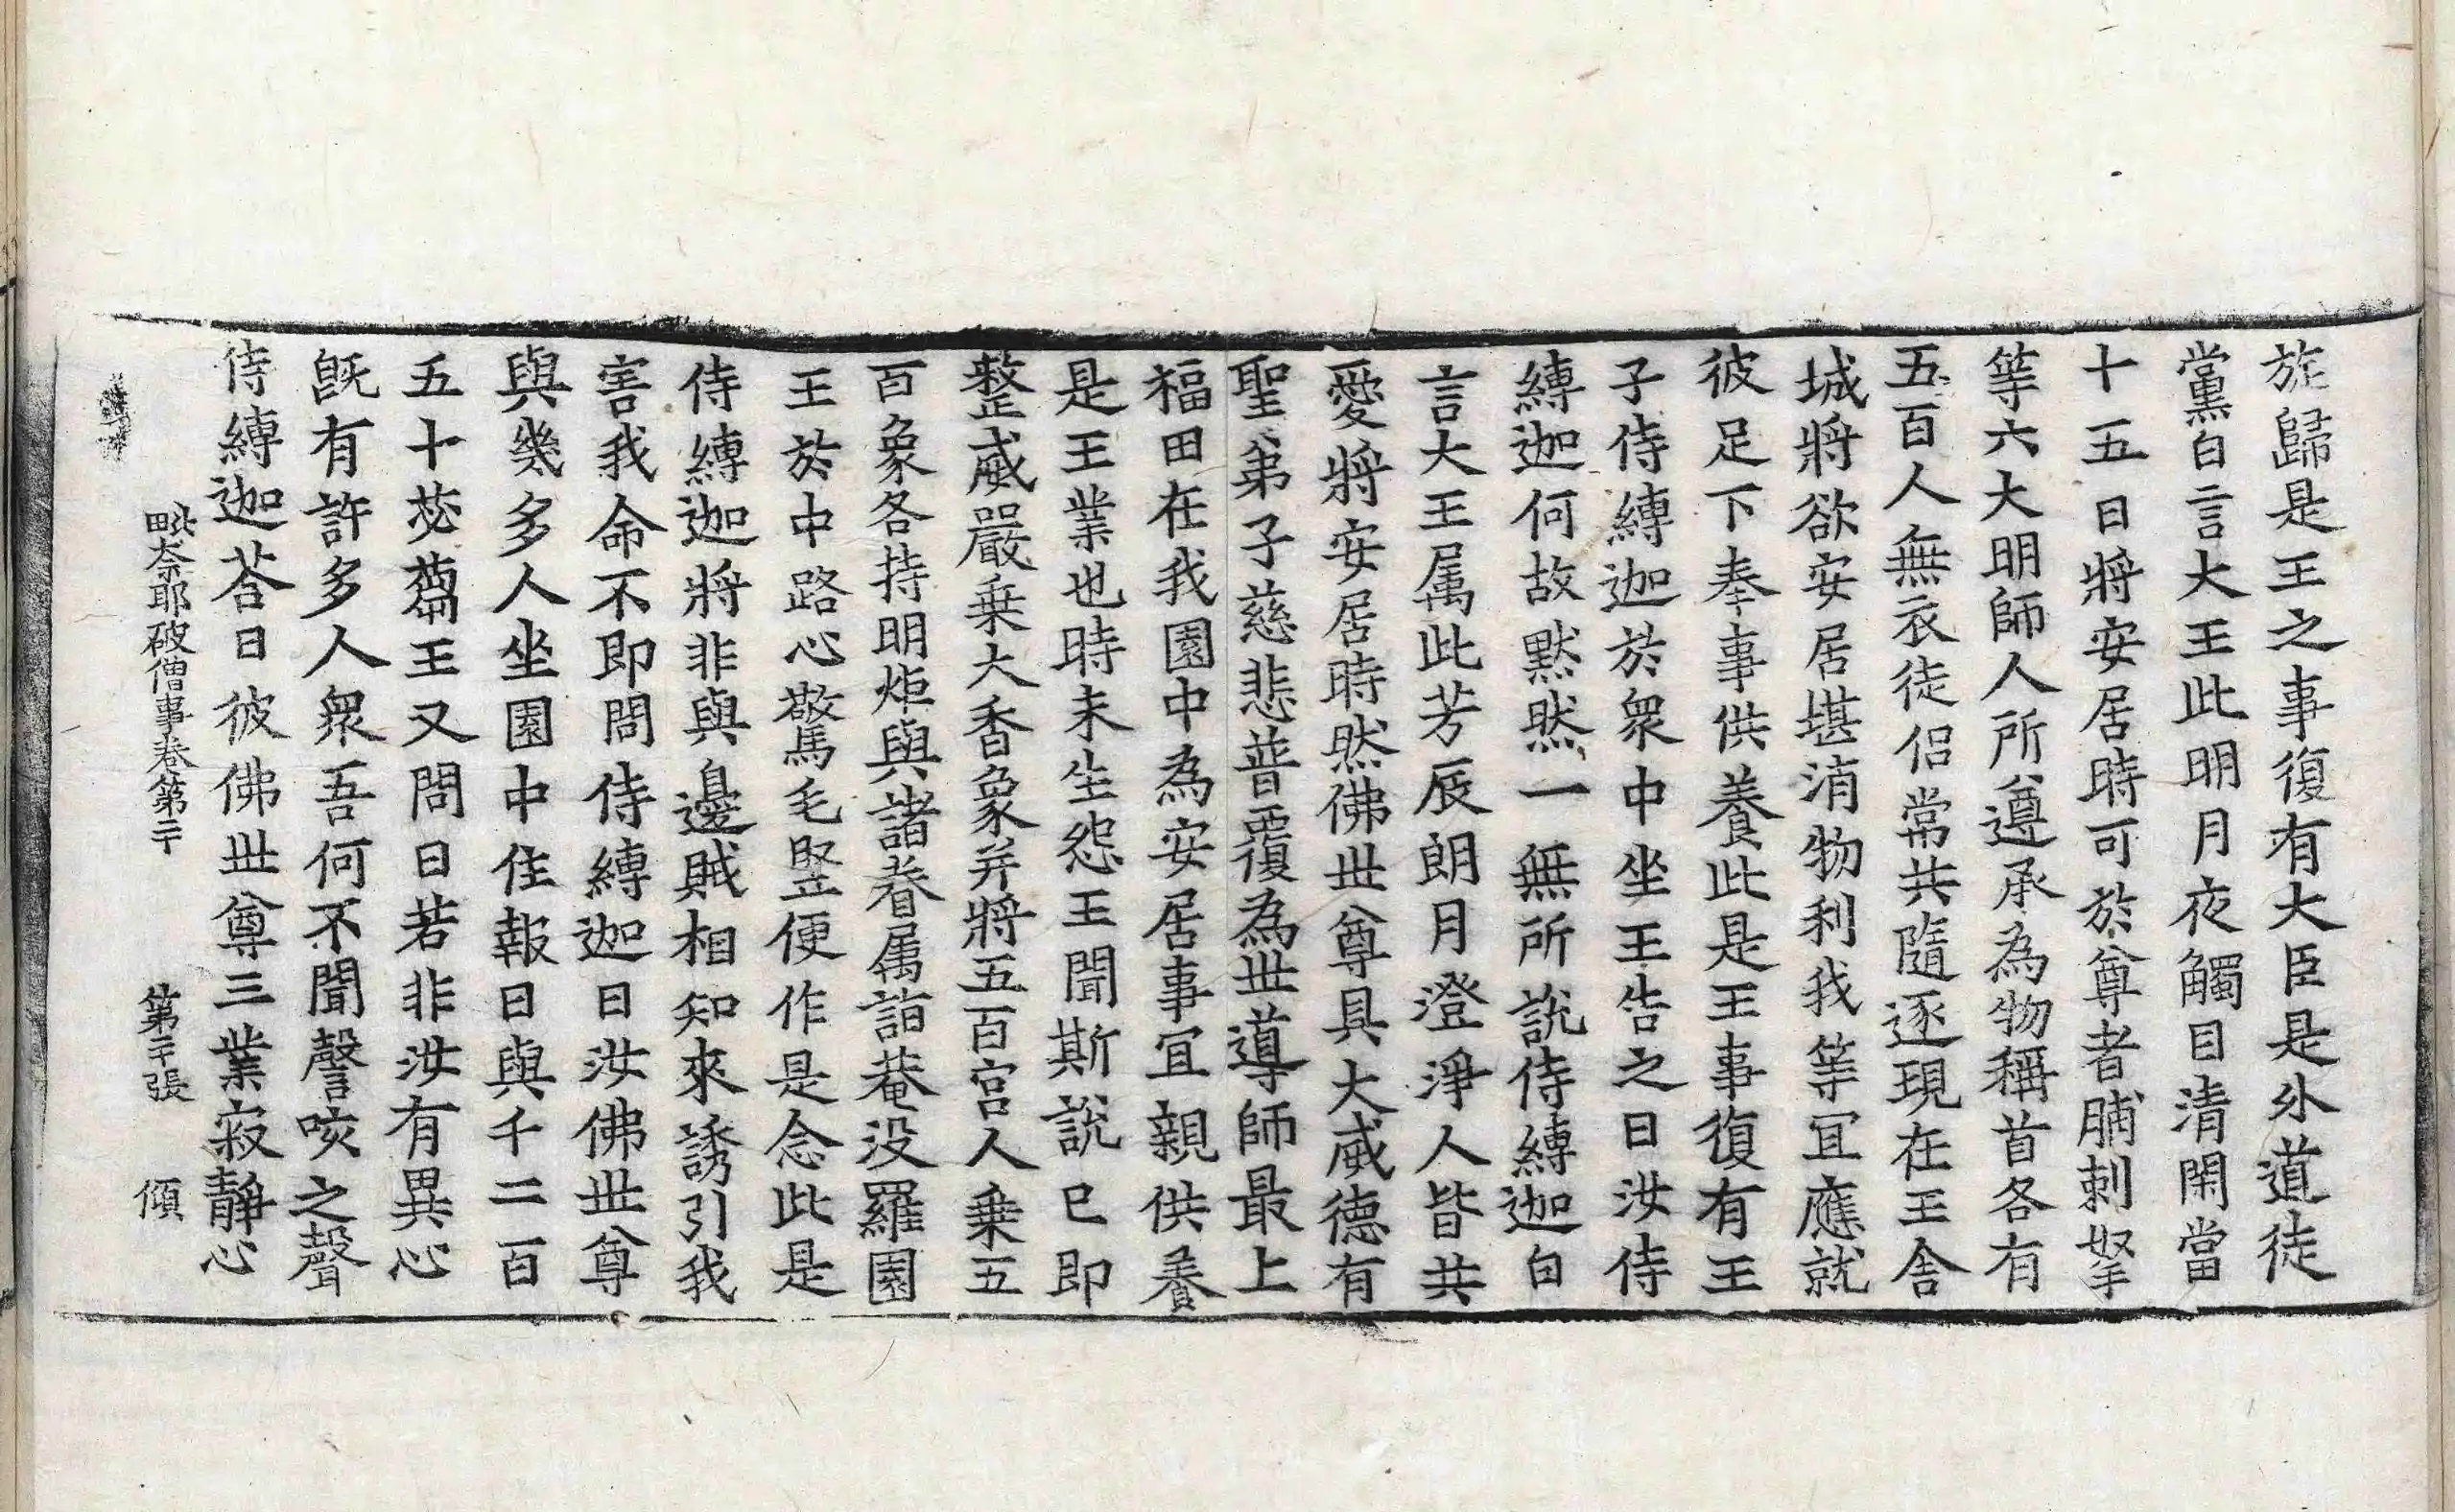 旋歸是王之事復有大臣是外道徒
黨白言大王此明月夜觸目清閑當
十五日將安居時可於尊者脯刺拏
等六大明師人所遵承為物稱首各有
五百人無衣徒侶常共隨逐現在王舍
城將欲安居堪消物利我等冝應就
彼足下奉事供養此是王事復有王
子侍縛迦於衆中坐王告之曰汝侍
縛迦何故默然一無所說侍縛迦白
言大王属此芳辰朗月澄淨人皆共
愛將安居時然佛世尊具大威德有
聖弟子慈悲普覆為世導師最上
福田在我園中為安居事冝親供養
是王業也時未生怨王聞斯說已即
整威嚴乗大香象并將五百宫人乗五
百象各持明炬與諸眷属詣菴没羅園
王於中路心驚毛竪便作是念此是
侍縛迦將非與邊賊相知來誘引我
害我命不即問侍縛迦曰汝佛世尊
與幾多人坐園中住報曰與千二百
五十苾蒭王又問曰若非汝有異心
旣有許多人衆吾何不聞謦咳之聲
侍縛迦荅曰彼佛世尊三業寂靜心
毗奈耶破僧事卷第二十　第二十張　傾